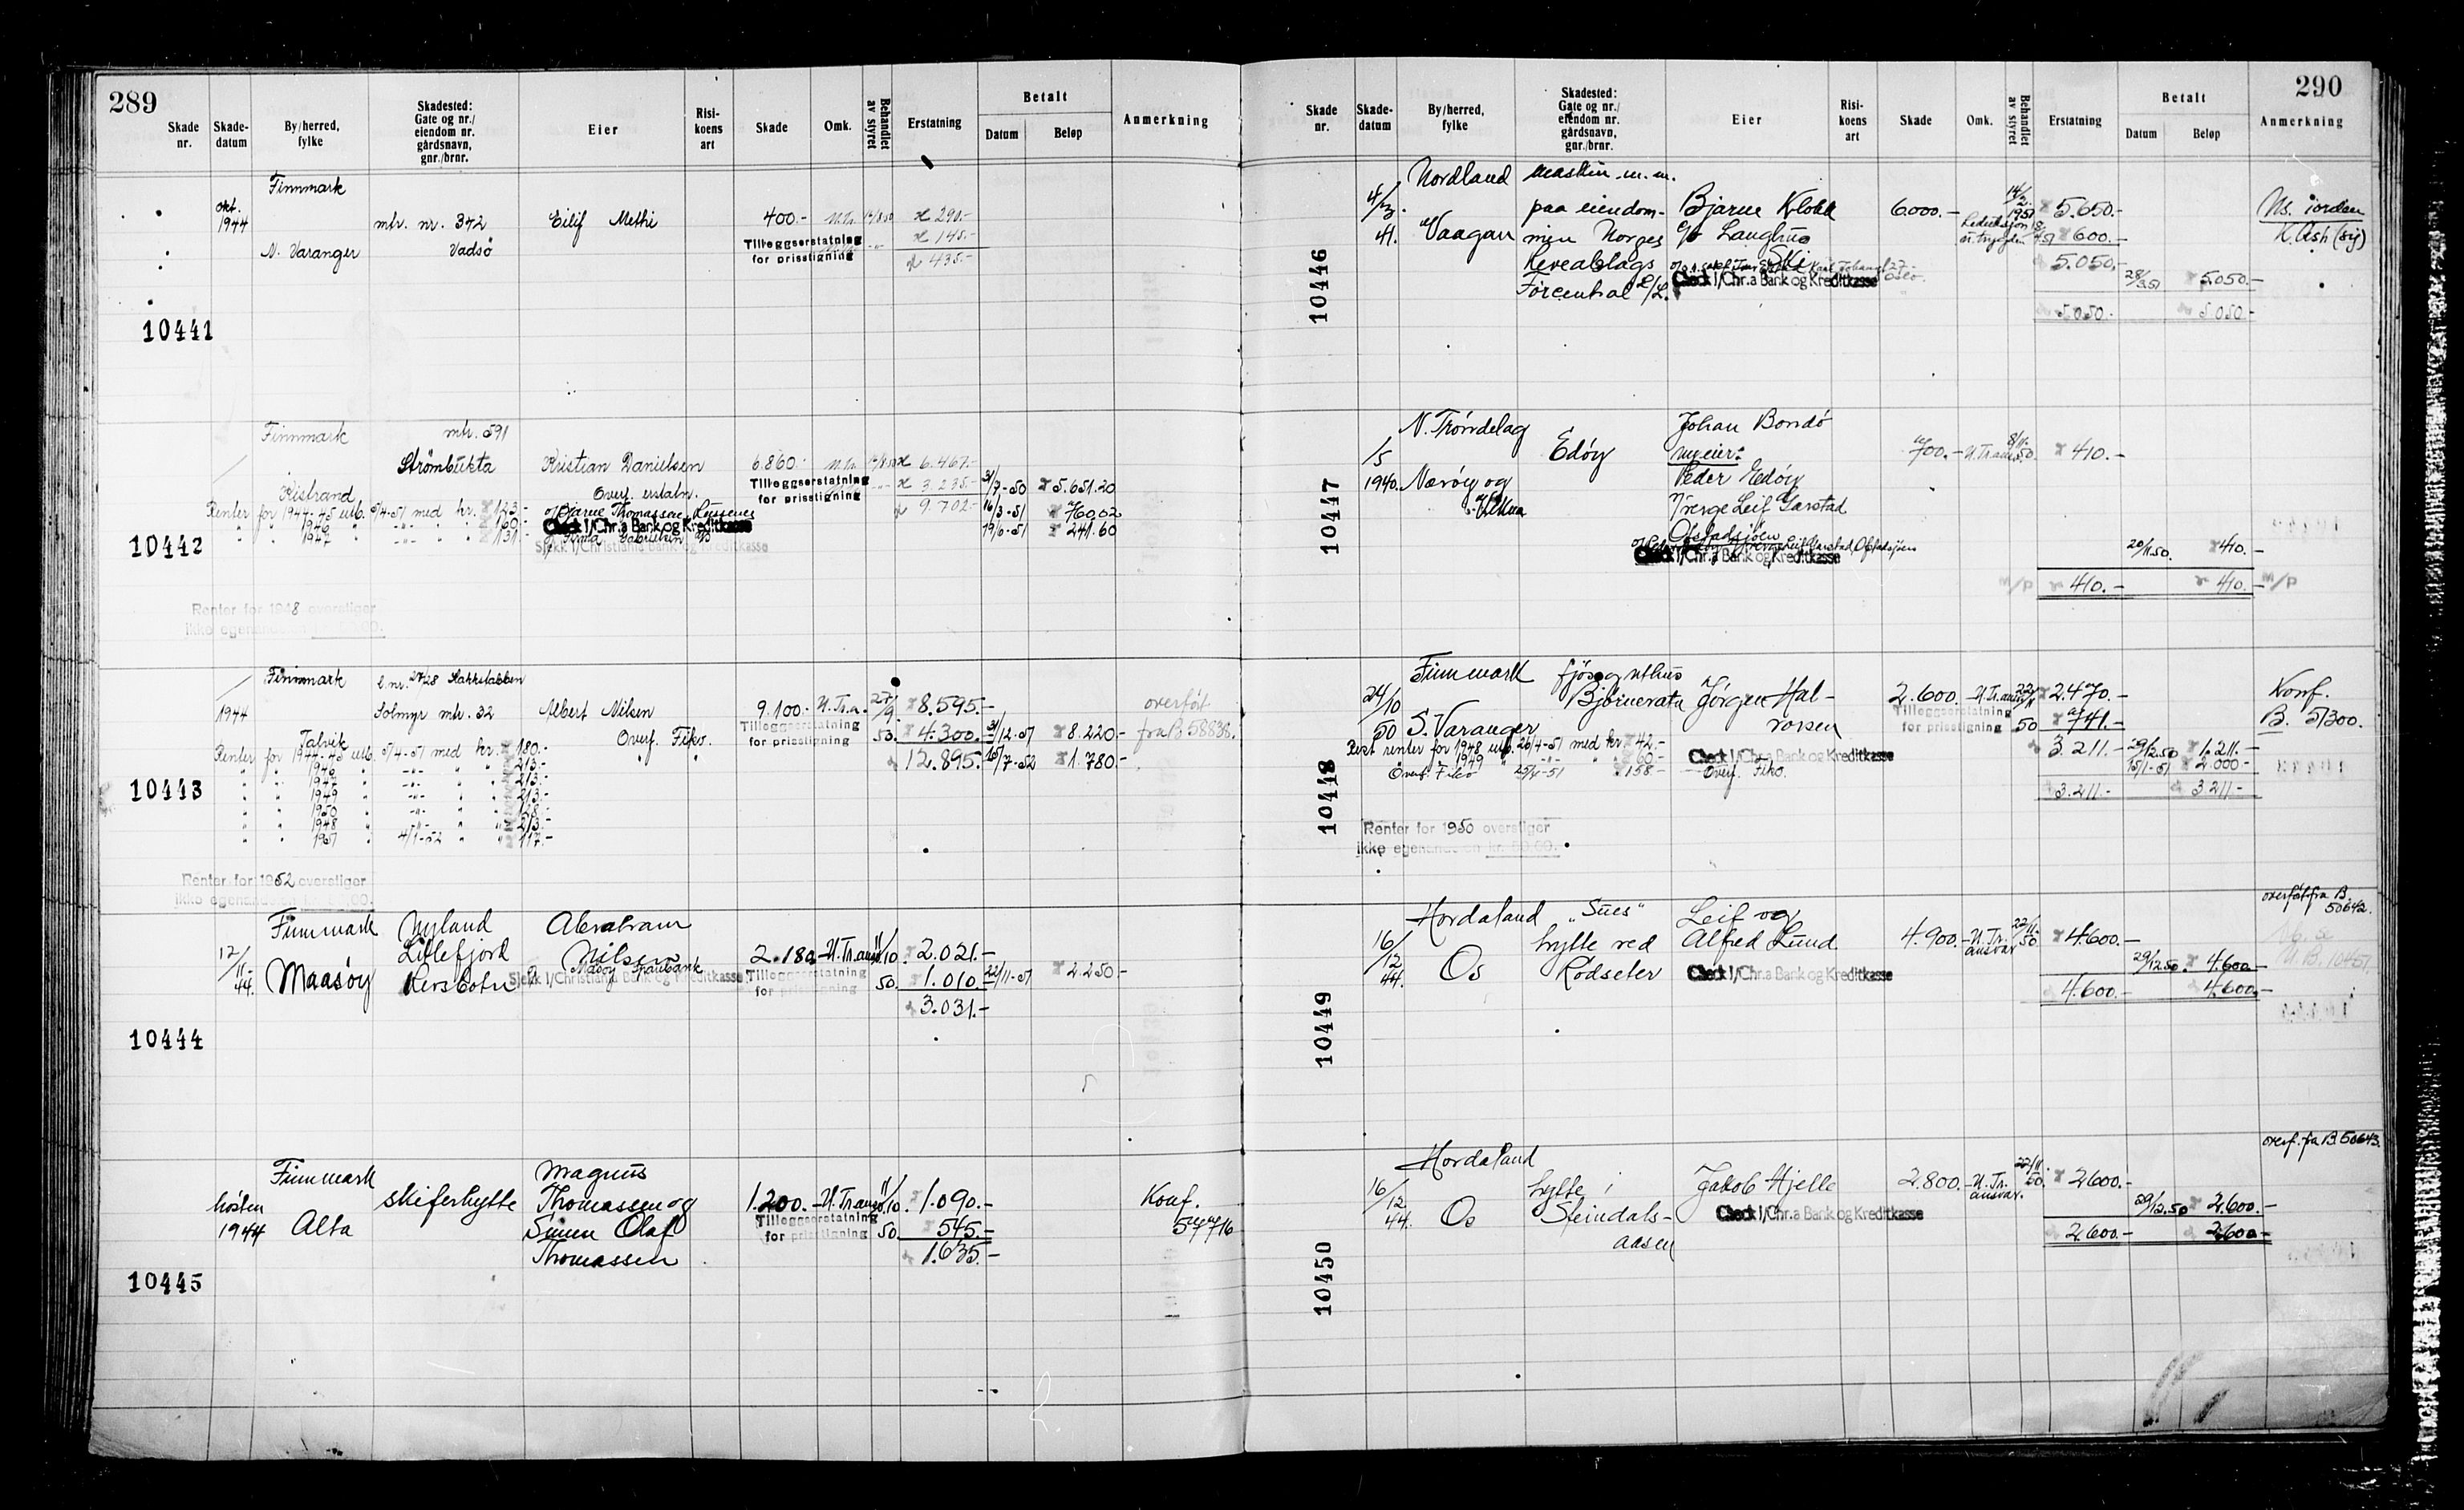 289
Skade nr.
Skade-datum
By/herred, fylke
Skadested: Gate og nr./ eiendom nr. gårdsnavn, gnr./brnr.
Eier
Risi-koens art
Skade
Omk.
Behandlet av styret
Erstatning
Betalt
Datum
Beløp
Anmerkning
Finnmark
okt.
1944 mtr. nr. 342 Eilif Methi 400.- 290.-
Tilleggserstatning 145.-
N. Varanger Vadsö for prisstigning 435.-
10441
Finnmark mtr. 591
Strömbukta Kristian Danielsen 6.860.- 6.467.-
Kistrand Overf. erstatn. Tilleggserstatning 3.235.- 31/7-50 5.651.20
for prisstigning
Renter for 1944-45 utb. 9/4-51 med kr. 123.- 9.702.- 16/3-51 760.02
" " 1946 " -"- " " 160.- Check i/Chr.a Bank og Kreditkasse 19/6-51 241.60
" " 1947 " -"- " " 131.-
Sjekk i/Christiania Bank og Kreditkasse
10442
Renter for 1948 overstiger
ikke egenandelen
Finnmark
1944 Solmyr mtr. 32 Albert Nilsen 9.100.- U.Tr.a. 27/9 8.595.- overført
Talvik Overf. Fiko. Tilleggserstatning 50. 4.300.- 31/12-51 8.220.- fra B 58838.
for prisstigning 12.895.- 15/7-52 1.780.-
Renter for 1944-45 utb. 5/4-51 med kr. 180.-
" " 1946 " -"- " " 213.-
" " 1947 " -"- " " 213.-
" " 1949 " -"- " " 213.-
" " 1950 " -"- " " 128.-
" " 1948 " -"- " " 213.-
" " 1951 " 4/1-52 " " 117.-
10443
Renter for 1952 overstiger
ikke egenandelen
Finnmark Nyland Abraham
12/11-44. Lillefjord Nilsen 2.180.- U.Tr.ansv. 11/10 2.021.-
Maasøy Kersbotn Måsøy Sparebank Tilleggserstatning 50. 1.010.- 22/11-51 2.250.-
Sjekk i/Christiania Bank og Kreditkasse for prisstigning
3.031.-
10444
Finnmark Magnus
hösten skiferhytte Thomassen og 1.200.- U.Tr.ansv. 11/10 1.090.- Konf.
1944 Alta Simen Olaf Tilleggserstatning 50. 545.- 54716
Thomassen for prisstigning 1.635.-
10445
290
Skade nr.
Skade-datum
By/herred, fylke
Skadested: Gate og nr./ eiendom nr. gårdsnavn, gnr./brnr.
Eier
Risi-koens art
Skade
Omk.
Behandlet av styret
Erstatning
Betalt
Datum
Beløp
Anmerkning
Nordland maskin m.m.
4/3- paa eiendom- Bjarne Klokk 6.000.- 14/2- 1951 5.650.-
41. Vaagan men Norges c/o Langhus 600.-
5.050.-
Check i/Chr.a Bank og Kreditkasse 28/3.51 5.050.-
5.050.- 5.050.-
10446
N. Trøndelag Johan Bondö
/5 Edöy ny eier: 700.- U.Tr.ansv. 8/11- 50. 410.-
1940. Nærøy og Peder Edöy
Verge Leif Garstad
Ofstadsjöen
Check i/Chr.a Bank og Kreditkasse 20/11.50. 410.-
M/P 410.- 410.- M/P
10447
Finnmark fjös og uthus
24/10 Bjørnevatn Jörgen Hal- 2.600.- U.Tr.ansv. 22/11 2.470.- Konf.
50 S. Varanger vorsen Tilleggserstatning 50 741.- B. 51300.
for prisstigning
Rest renter for 1948 utb. 26/4-51 med kr. 42.- 3.211.- 29/12.50 1.211.-
" " 1949 " -"- " 60.- Check i/Chr.a Bank og Kreditkasse 15/1-51 2.000.-
Overf. Fiko 25/4-51 158.- Overf. Fiko. 3.211.- 3.211.-
10448
Renter for 1950 overstiger
ikke egenandelen kr. 50.00.
overført fra B. 50642.
Hordaland „Sues" Leif og
16/12 hytte ved Alfred Lund 4.900.- U.Tr. ansvar 22/11- 50 4.600.-
44. Os Rödseter Check i/Chr.a Bank og Kreditkasse 29/12.50. 4.600.-
4.600.- 4.600.-
10449
overf. fra B. 50643.
Hordaland
16/12 hytte i Jakob Hjelle 2.800.- U.Tr. ansvar. 22/11. 50. 2600.-
44. Os Steindals- Check i/Chr.a Bank og Kreditkasse 29/12.50 2.600.-
aasen 2.600.- 2.600.-
10450